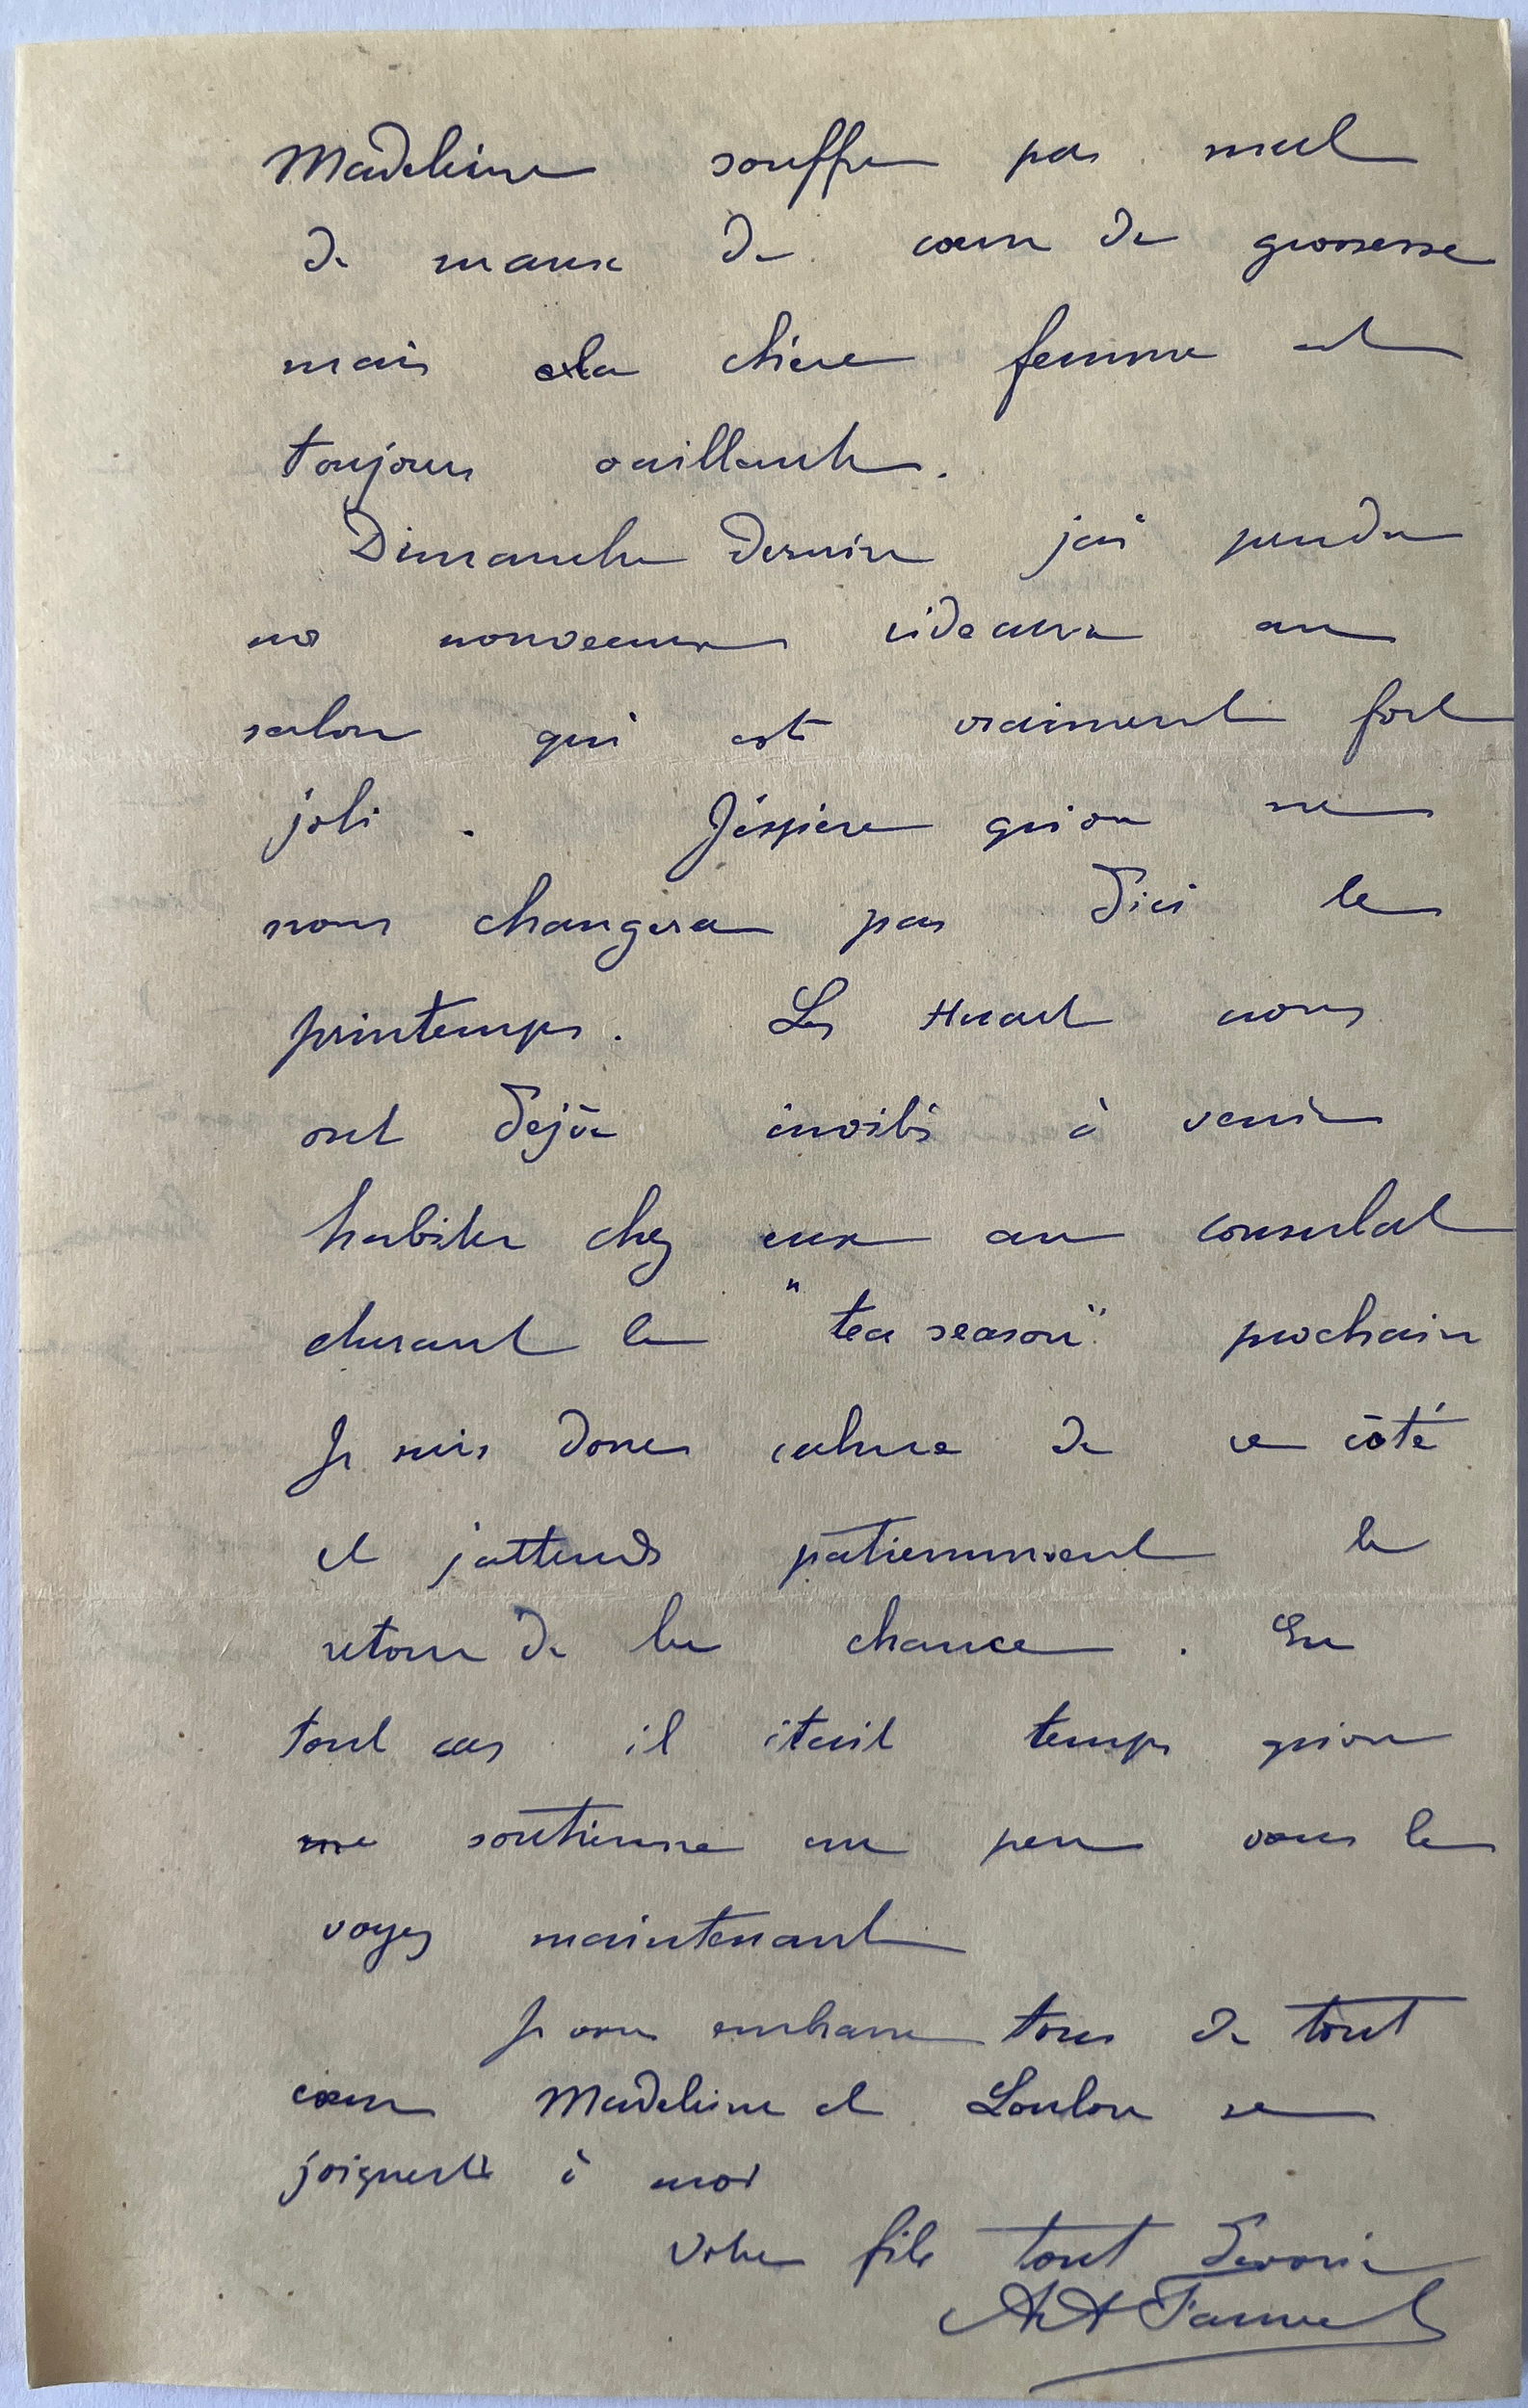 Madeleine souffre pas mal
de maux de coeur de grossesse
mais la chère femme est
toujours vaillante.
Dimanche dernier j'ai pendu
nos nouveaux rideaux au
salon qui est vraiment fort
joli. J'éspère qu'on ne
nous changera pas d'ici le
printemps. Les Huart nous
ont dejà invités à venir
habiter chez eux au consulat
durant le "tea season" prochain
Je suis donc calme de ce côté
et j'attends patiemment le
retour de la chance. En
tout cas il était temps qu'on
me soutienne un peu vous le
voyez maintenant
Je vous embrasse tous de tout
coeur Madeleine et Loulou se
joignent à moi
Votre fils tout dévoué